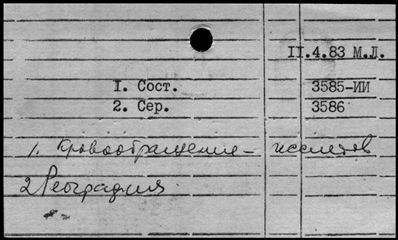 II.4.83 М.Л.
I. Сост. 3585-ИИ
2. Сер. 3586
1. Кровообращение - исследов
2 Реография